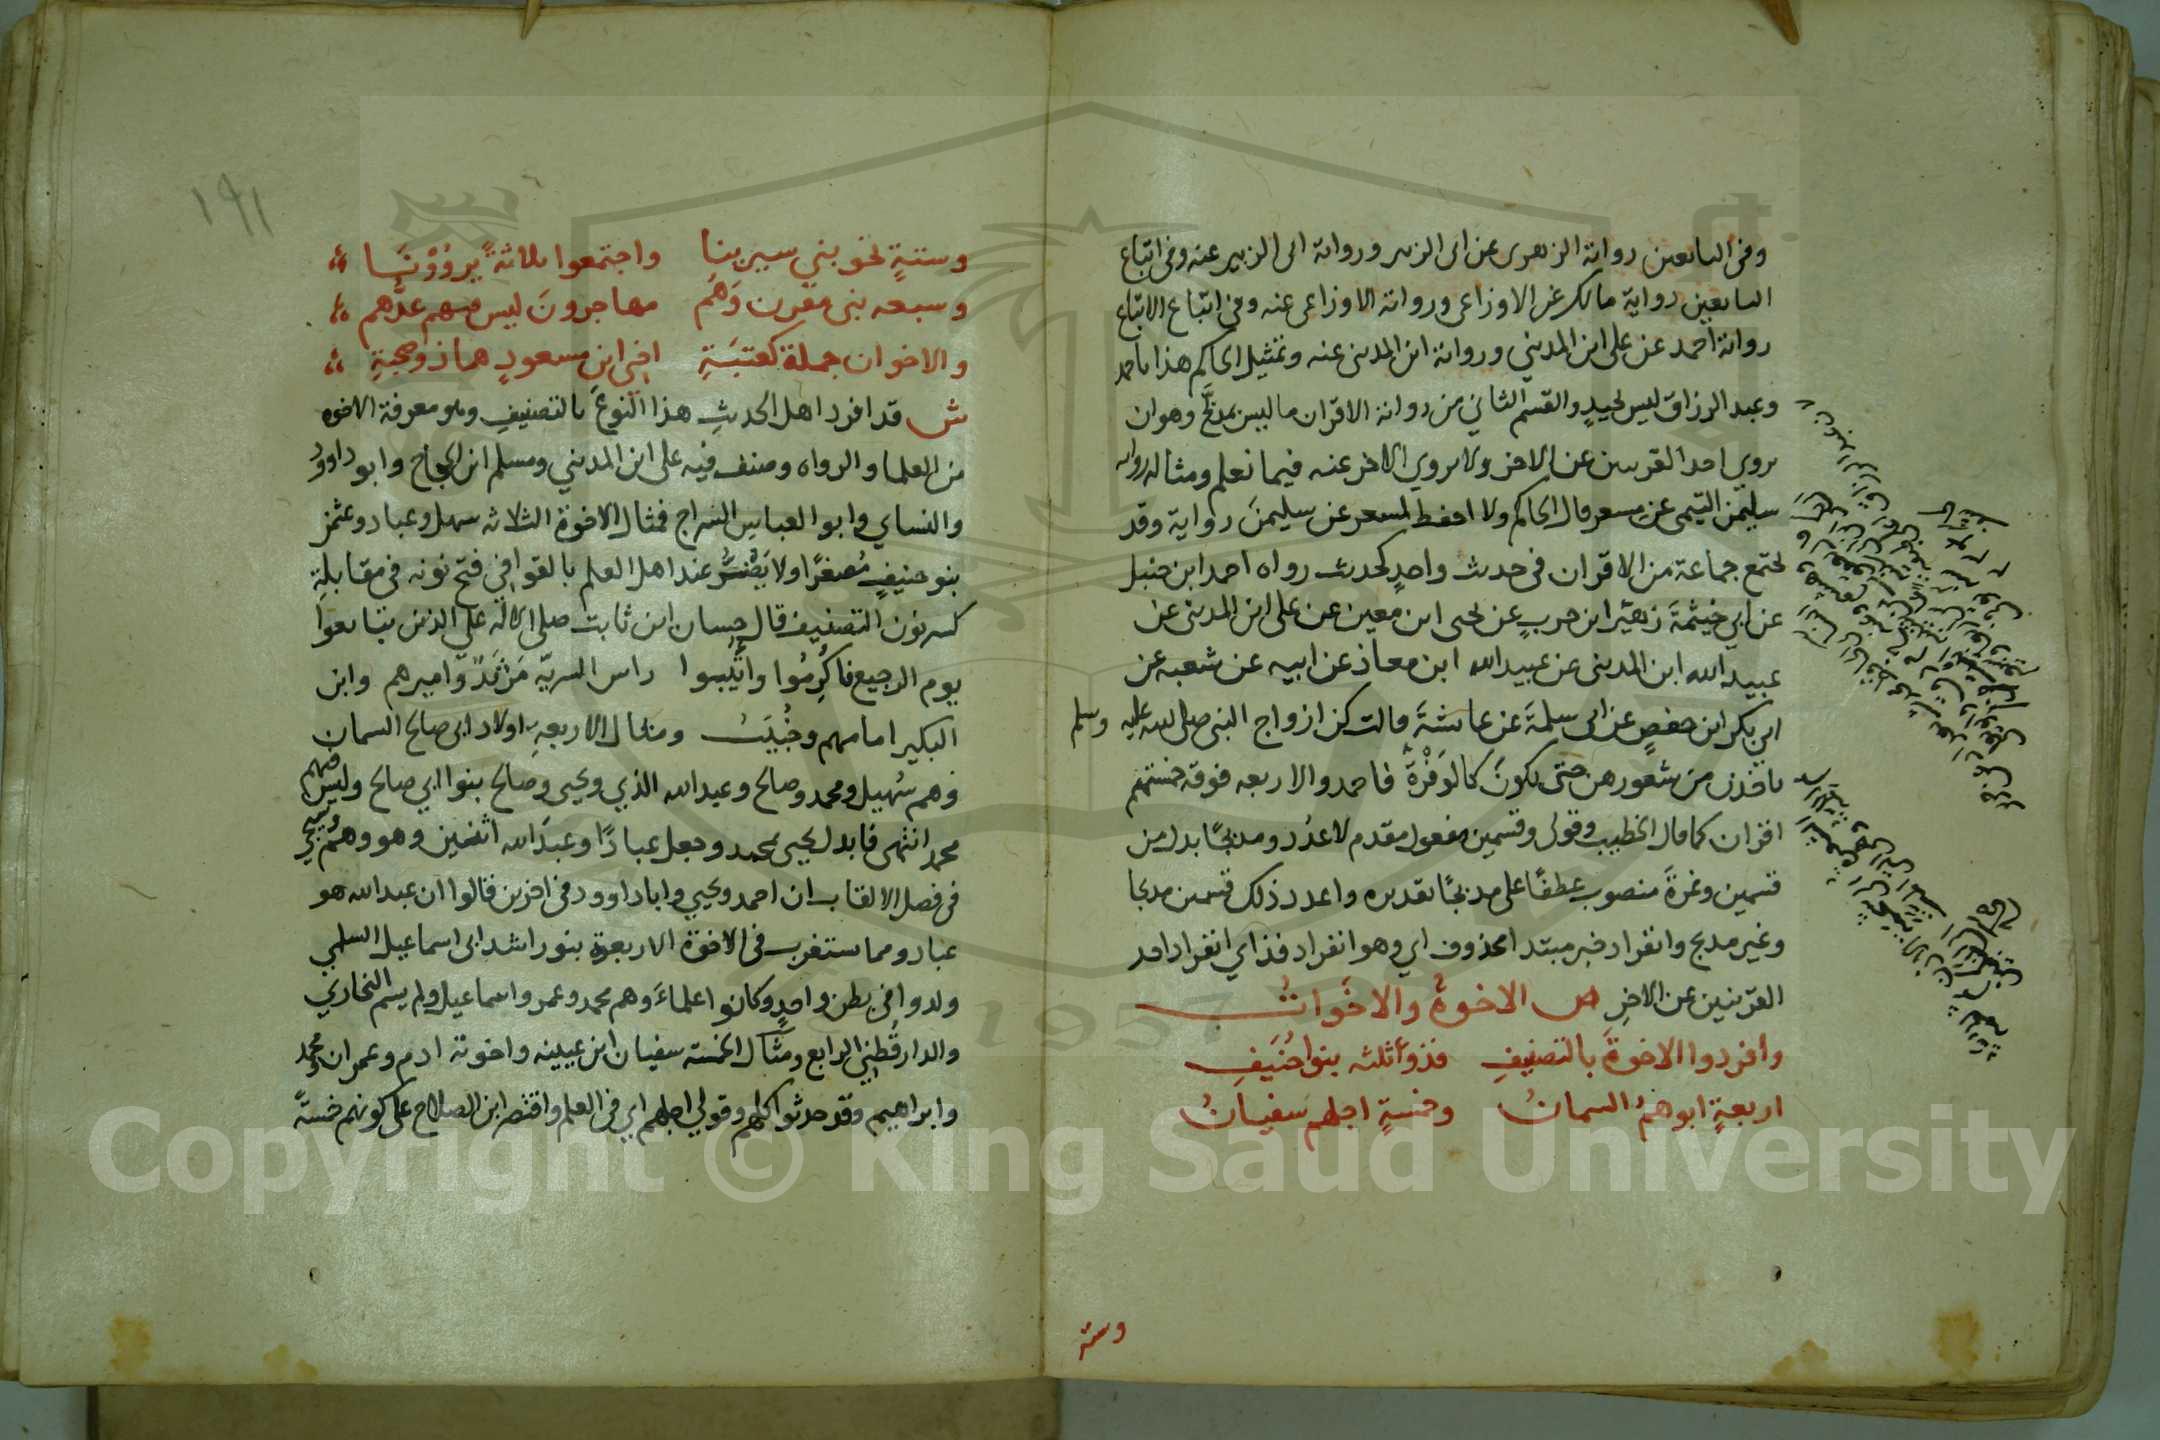 وفى التابعين رواية الزهرى عن ابى الزبير ورواية ابى الزبير عنه وفى اتباع
التابعين رواية مالك عن الاوزاعى ورواية الاوزاعى عنه وفى اتباع الاتباع
رواية احمد عن على ابن المديني ورواية ابن المدينى عنه وتمثيل الحاكم هذا باحمد
وعبد الرزاق ليس بجيدٍ والقسم الثاني من رواية الاقران ما ليس بمدبَّج وهو ان
يروي احد القرينين عن الاخر ولا يروي الاخر عنه فيما نعلم ومثاله رواية
سليمٰن التيمى عن مسعر قال الحاكم ولا احفظ لمسعر عن سليمٰنَ رواية وقد
يجتمع جماعة من الاقران فى حديث واحدٍ كحديث رواه احمد ابن حنبل
عن ابي خيثمةَ زهيْر ابن حربٍ عن يحيى ابن معين عن على ابن المدينى عن
عبيد الله ابن المدينى عن عبيد الله ابن معاذ عن ابيه عن شعبه عن
ابى بكر ابن حفصٍ عن ابى سلمةَ عن عائشةَ قالت كن ازواج النبى صلى الله عليه وسلم
ياخذن من شعورهن حتى يكونَ كالوَفْرَةِ فاحمد والاربعه فوقه خمستهم
اقران كما قال الخطيب وقولى وقسمين مفعول مقدم لاعدُد ومدبجًا بدل من
قسمين وغيرَهُ منصوب عطفًا على مدبجًا تقديره واعدد ذلك قسمين مدبجا
وغير مدبج وانفراد خبر مبتدا محذوف اي وهو انفراد فذ اي انفراد احد
القرينين عن الاخرِ ص الاخوةُ والاخَواتُ
وأفردوا الاخوةَ بالتصنيفِ فذو ثلثه بنو حُنَيفِ
اربعةٍ ابوهمُ السمانُ وخمسةٍ اجلهم سفيانُ
وستة
١٩١
وستةٍ نحو بني سيرينا واجتمعوا ثلاثةً يروُوْنَا
وسبعه بنى مقرن وَهُم مهاجرونَ ليس فيهم عدُّهم
والاخوان جملة كعتبَةِ اخي ابن مسعودٍ هما ذو صحبةِ
ش قد افرد اهل الحديثِ هذا النوعَ بالتصنيفِ وهو معرفة الاخوه
من العلما والرواه وصنف فيه على ابن المديني ومسلم ابن الحجاج وابو داودُ
والنساي وابو العباس السراج فمثال الاخوة الثلاثه سهل وعباد وعثمٰن
بنو حنيفٍ مُصغرًا ولا يَضُرُّ عند اهل العلم بالقوافي فتح نونه فى مقابلةِ
كسر نون التصنيف قال حسان ابن ثابت صلى الاله على الذين تتابعوا
يوم الرجيع فاكْرِمُوا واثيبوا راس السريّة مَرْثَدٌ واميرهم وابن
البكير امامهم وخُبَيبُ ومثال الاربعةِ اولاد ابى صالح السمان
وهم سُهيل ومحمد وصالح وعبد الله الذي ويحيى وصالح بنوا ابي صالح وليس فيهم
محمد انتهى فابدل يحيى بمحمد وجعل عبادًا وعبدَ الله اثنين وهو وهمٌ سيجي
فى فصل الالقاب ان احمد ويحيي وابا داوود فى اخرين قالوا ان عبد الله هو
عباد ومما يستغرب فى الاخوة الاربعة بنو راشد ابى اسماعيل السلمي
ولدوا فى بطن واحدٍ وكانوا علماءَ وهم محمد وعمر واسماعيل ولم يسم البخاري
والدارقُطني الرابع ومثال الخمسه سفيان ابن عيينه واخوته ادم وعمران ومحمد
وابراهيم وقد حدثوا كلهم وقولي اجلهم اي فى العلم واقتصر ابن الصلاح على كونهم خمسةً
1957
Copyright © King Saud University